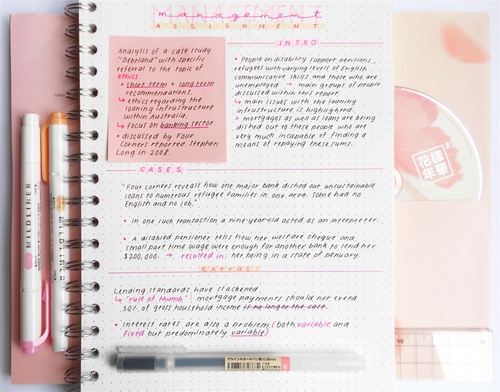 MANAGEMENT
management
ASSIGNMENT
Analysis of a case study
"Debtland" with specific
referral to the topic of
ethics.
• short term + long term
recommendations.
↳ ethics regarding the
loaning infrastructure
within Australia.
↳ focus on banking sector
• discussed by Four
Corners reported Stephen
Long in 2008.
INTRO
• People on disability support pensions,
refugees with varying levels of English
communicative skills and those who are
unemployed → main groups of people
discussed within this report.
↳ main issues with the loaning
infrastructure is highlighted.
↳ mortgages as well as loan are being
dished out to these people who are
very much incapable of finding a
means of repaying these sums.
CASES
"Four Corners reveals how one major bank dished out unsustainable
loans to numerous refugee families in one area. Some had no
English and no job."
• In one such transaction a nine-year-old acted as an interpreter.
• A disabled pensioner tells how her welfare cheque and
small part time wage were enough for another bank to send her
$200,000. → resulted in: her being in a state of penury.
extras:
Lending standards have slackened
↳ 'rule of thumb': mortgage payments should not exceed
30% of gross household income is no longer the case.
• Interest rates are also a problem (both variable and
fixed but predominately variable)
MILDLINER
MILDLINER
花樣
年華
ゲルインキボールペン 0.38mm